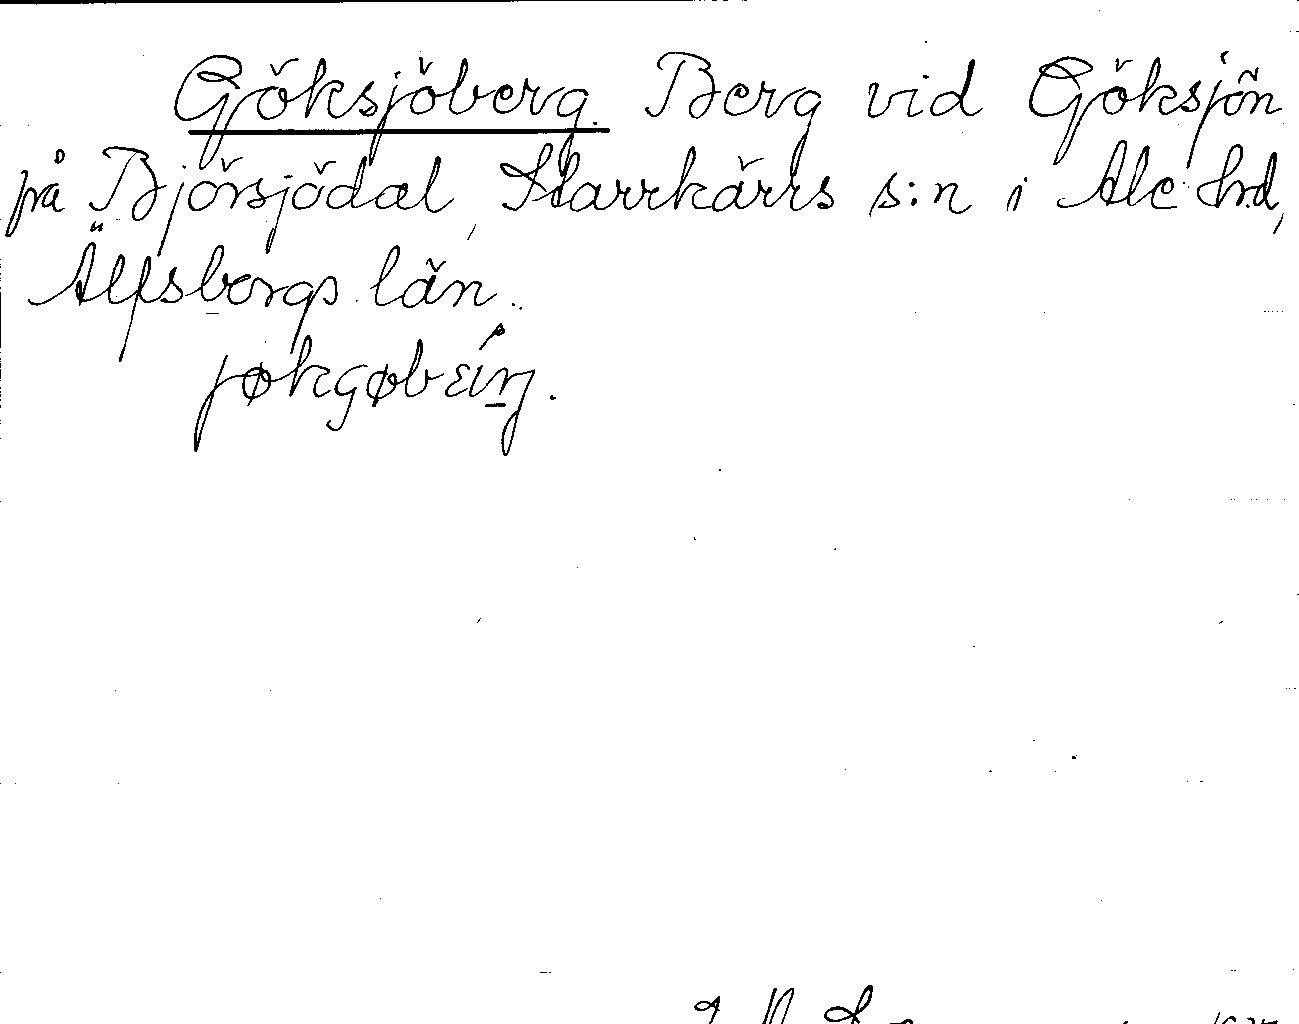 Göksjöberg. Berg vid Göksjön
på Björsjödal, Starrkärrs s:n i Ale hrd,
Älfsborgs län.